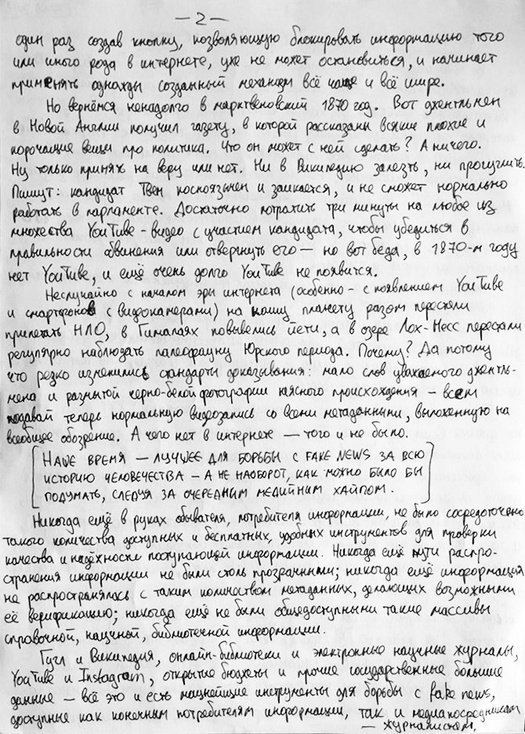 — 2 —
один раз создав кнопку, позволяющую блокировать информацию того
или иного рода в интернете, уже не может остановиться, и начинает
применять однажды созданный механизм всё чаще и всё шире.
Но вернёмся ненадолго в марктвеновский 1870 год. Вот джентльмен
в Новой Англии получил газету, в которой рассказаны всякие плохие и
порочащие вещи про политика. Что он может с ней сделать? А ничего.
Ну только принять на веру или нет. Ни в Википедию залезть, ни прогуглить.
Пишут: кандидат Твен косноязычен и заикается, и не сможет нормально
работать в парламенте. Достаточно потратить три минуты на любое из
множества YouTube-видео с участием кандидата, чтобы убедиться в
правильности обвинения или отвергнуть его — но вот беда, в 1870-м году
нет YouTube, и ещё очень долго YouTube не появится.
Неслучайно с началом эры интернета (особенно - с появлением YouTube
и смартфонов с видокамерами) на нашу планету разом перестали
прилетать НЛО, в Гималаях повывелись йети, а в озере Лох-Несс перестали
регулярно наблюдать палеофауну Юрского периода. Почему? Да потому
что резко изменились стандарты доказывания: мало слов уважаемого джентль-
мена и размытой черно-белой фотографии неясного происхождения - всем
подавай теперь нормальную видеозапись со всеми метаданными, выложенную на
всеобщее обозрение. А чего нет в интернете — того и не было.
НАШЕ ВРЕМЯ — ЛУЧШЕЕ ДЛЯ БОРЬБЫ С FAKE NEWS ЗА ВСЮ
ИСТОРИЮ ЧЕЛОВЕЧЕСТВА — А НЕ НАОБОРОТ, КАК МОЖНО БЫЛО БЫ
ПОДУМАТЬ, СЛЕДУЯ ЗА ОЧЕРЕДНЫМ МЕДИЙНЫМ ХАЙПОМ.
Никогда ещё в руках обывателя, потребителя информации, не было сосредоточено
такого количества доступных и бесплатных, удобных инструментов для проверки
качества и надёжности поступающей информации. Никогда ещё пути распро-
странения информации не были столь прозрачными; никогда ещё информация
не распространялась с таким количеством метаданных, делающих возможными
её верификацию; никогда ещё не были общедоступными такие массивы
справочной, научной, библиотечной информации.
Гугл и Википедия, онлайн-библиотеки и электронные научные журналы,
YouTube и Instagram, открытые бюджеты и прочие государственные большие
данные — всё это и есть мощнейшие инструменты для борьбы с fake news,
доступные как конечным потребителям информации, так и медиапосредникам
— журналистам,